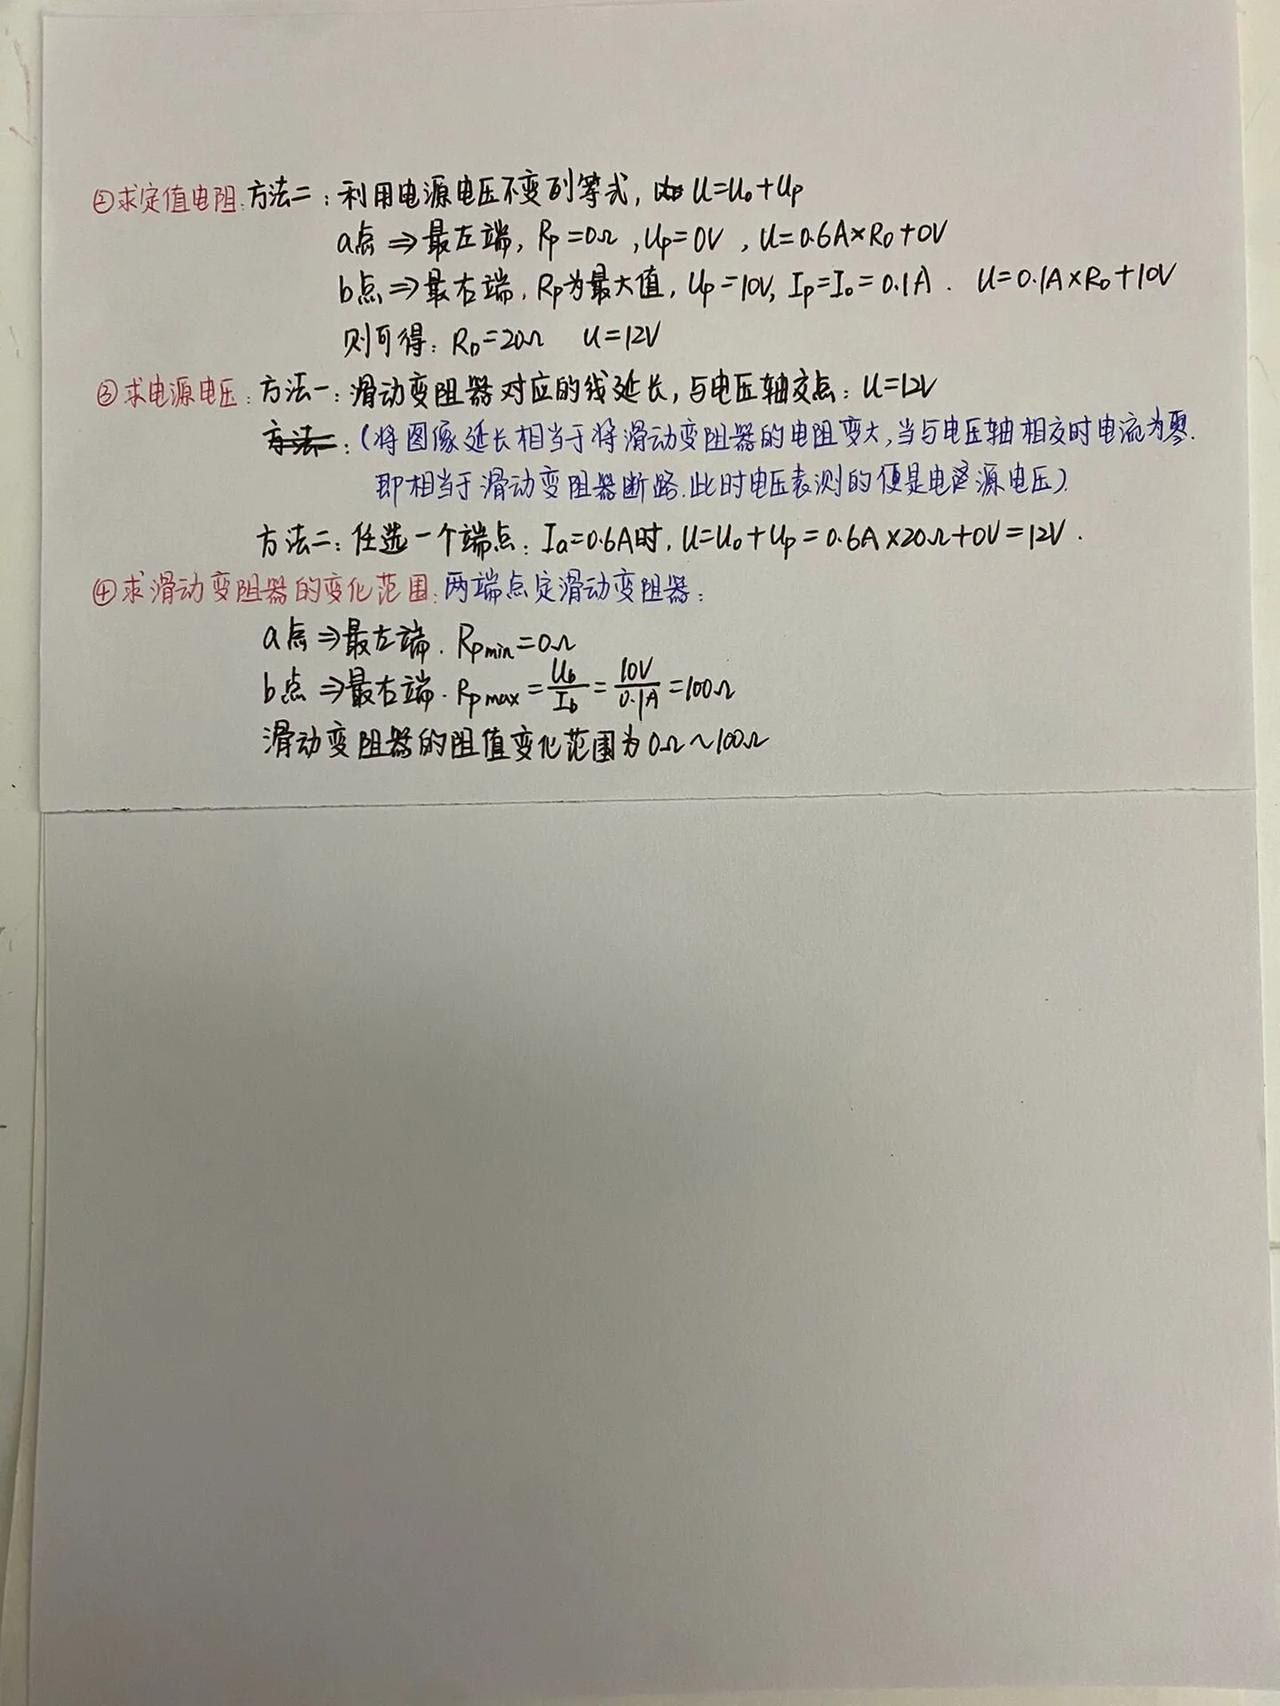 ②求定值电阻：方法二：利用电源电压不变列等式，由 U=U₀+Up
a点⇒最左端，Rp=0Ω，Up=0V，U=0.6A×R₀+0V
b点⇒最右端，Rp为最大值，Up=10V，Ip=I₀=0.1A．U=0.1A×R₀+10V
则可得：R₀=20Ω U=12V
③求电源电压：方法一：滑动变阻器对应的线延长，与电压轴交点：U=12V
方法二：(将图像延长相当于将滑动变阻器的电阻变大，当与电压轴相交时电流为零．
即相当于滑动变阻器断路．此时电压表测的便是电源电压)
方法二：任选一个端点：Ia=0.6A时，U=U₀+Up=0.6A×20Ω+0V=12V．
④求滑动变阻器的变化范围：两端点定滑动变阻器：
a点⇒最左端．Rpmin=0Ω
b点⇒最右端．Rpmax=Ub/Ib=10V/0.1A=100Ω
滑动变阻器的阻值变化范围为0Ω~100Ω